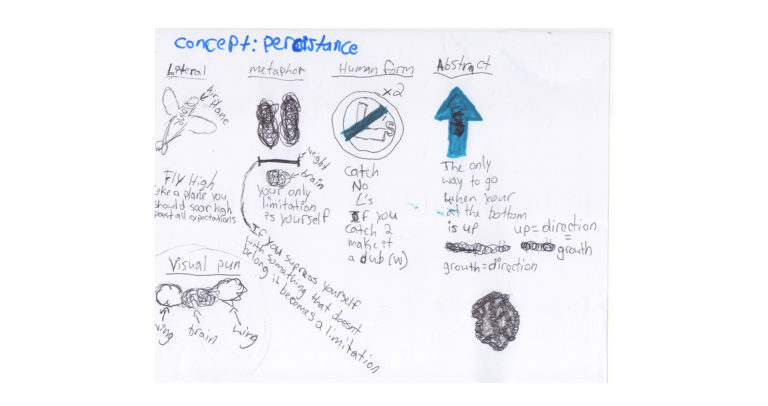 concept: percistance
Lateral
Airplane
Fly High
like a plane you
should soar high
past all expectations
metaphor
weight
brain
your only
limitation
is yourself
If you supress yourself
with something that doesnt
belong it becomes a limitation
Human form
x2
L's
catch
No
L's
If you
catch 2
make it
a dub (w)
Abstract
$
The only
way to go
when your
at the bottom
is up
up = direction
=
growth
growth = direction
Visual pun
wing
brain
wing